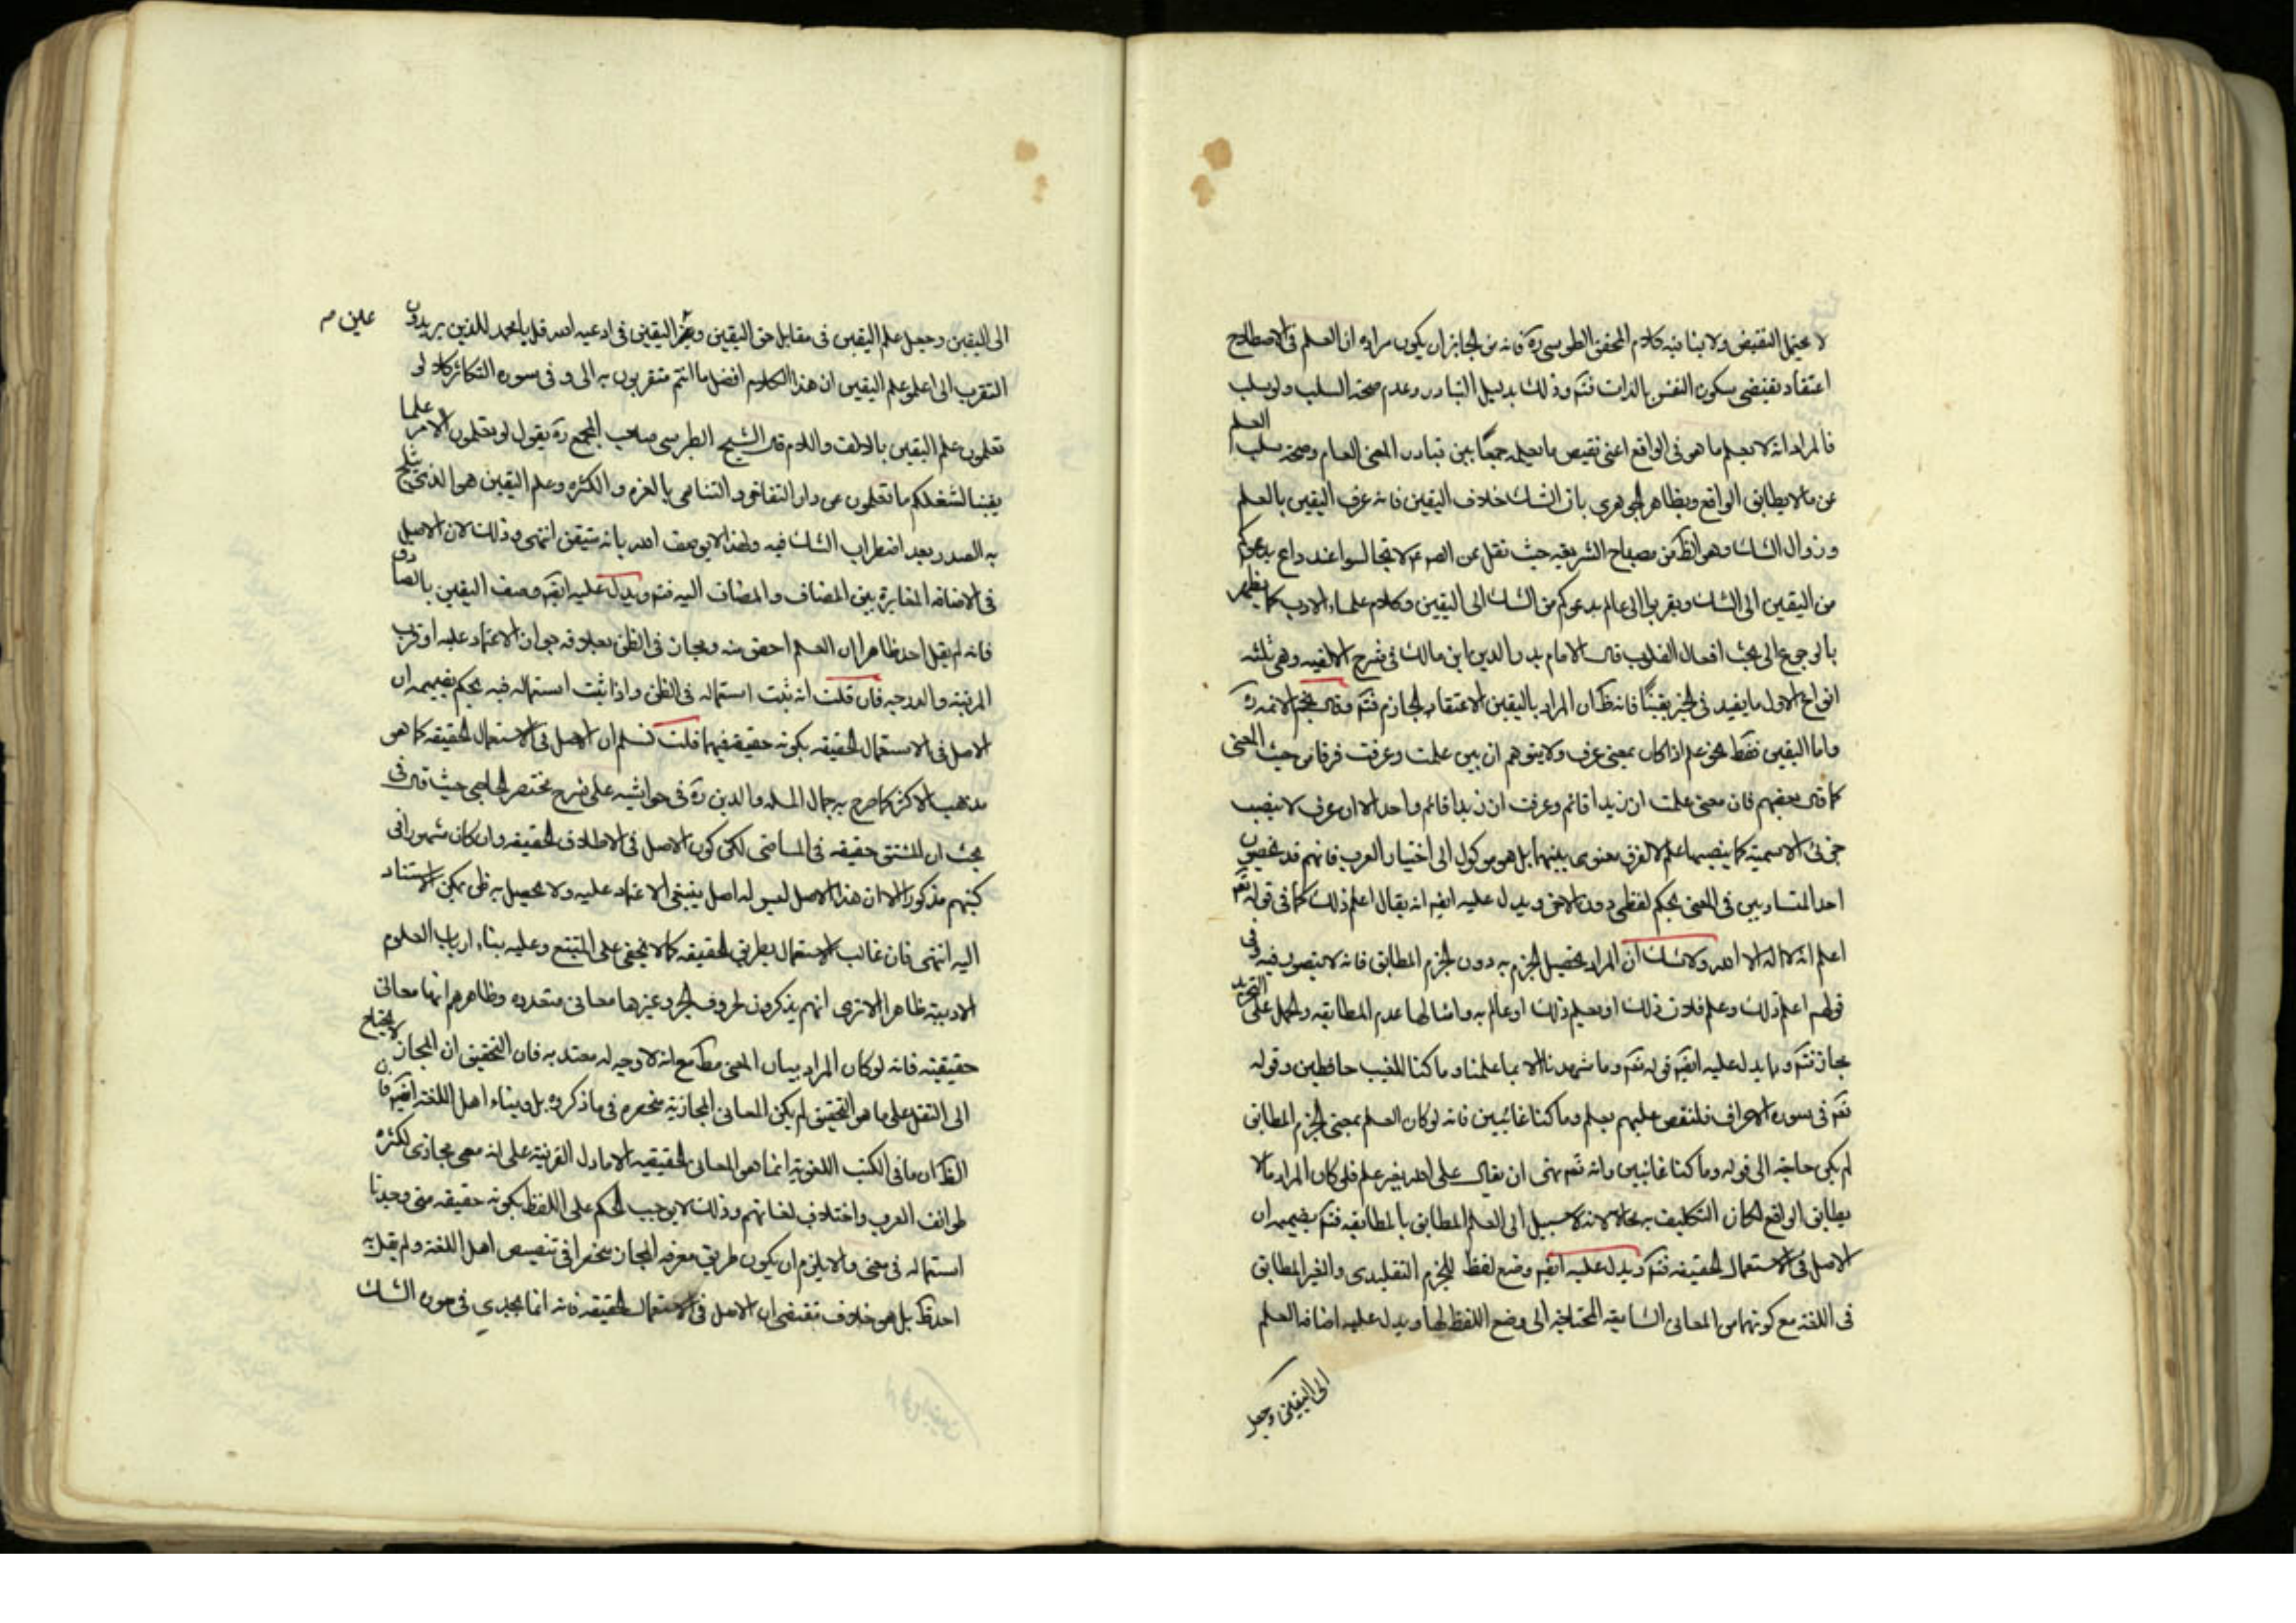 لا يحتمل النقيض ولا ينافيه كلام المحقق الطوسي ره فانه من الجايز ان يكون مراده ان العلم في الاصطلاح
اعتقاد يقتضي سكون النفس بالذات فتم وذلك بدليل التبادر وعدم صحة السلب ولو سلب
فالمراد انه لا يعلم ما هو في الواقع اعني نقيض ما يعلمه جمعًا بين تبادر المعنى العام وصحة سلب العلم
عن مالا يطابق الواقع وبظاهر الجوهري بان الشك خلاف اليقين فانه عرف اليقين بالعلم
وزوال الشك وهو الظ من مصباح الشريعه حيث نقل عن الصم لا تجالسوا عند داع يدعوكم
من اليقين الى الشك وتقربوا الى عالم يدعوكم من الشك الى اليقين وكلام علماء الادب كما يظهر
بالرجوع الى بحث افعال القلوب قال الامام بدر الدين ابن مالك في شرح الالفيه وهي ثلثه
انواع الاول ما يفيد في الخبر يقينًا فانه ظ ان المراد باليقين الاعتقاد الجازم فتم وقال نجم الائمه ره
واما اليقين فقط نحو علم اذا كان بمعنى عرف ولا يتوهم ان بين علمت وعرفت فرقا من حيث المعنى
كما قال بعضهم فان معنى علمت ان زيدا قائم وعرفت ان زيدا قائم واحد الا ان عرف لا ينصب
جزئي الاسمية كما ينصبهما علم لا لفرق معنوي بينهما بل هو موكول الى اختيار العرب فانهم قد يخصون
احد المتساويين في المعنى بحكم لفظي دون الاخر ويدل عليه ايضا انه يقال اعلم ذلك كما في قوله تع
اعلم انه لا اله الا الله ولا شك ان المراد تحصيل الجزم به دون الجزم المطابق فانه لا يتصور فيه وفي
قولهم اعلم ذلك وعلم فلان ذلك او يعلم ذلك او عالم به وامثالها عدم المطابقه والحمل على التجريد
مجاز فتم ومما يدل عليه ايضا قوله تع وما شهدنا الا بما علمنا وما كنا للغيب حافظين وقوله
تع في سورة الاعراف فلنقص عليهم بعلم وما كنا غائبين فانه لو كان العلم بمعنى الجزم المطابق
لم يكن حاجة الى قوله وما كنا غائبين وانه تع نهى ان يقال على الله بغير علم فلو كان المراد مالا
يطابق الواقع لكان التكليف به محالا لانه لا سبيل الى العلم المطابق بالمطابقه فتم بضميمه ان
الاصل في الاستعمال الحقيقه فتم ويدل عليه ايضا وضع لفظ للجزم التقليدي والغير المطابق
في اللغة مع كونهما من المعاني الشايعه المحتاجه الى وضع اللفظ لها ويدل عليه اضافه العلم
الى اليقين وجعل
الى اليقين وجعل علم اليقين في مقابل حق اليقين وعين اليقين في ادعيه السر قل يا محمد للذين يريدون
التقرب الى اعلموا علم اليقين ان هذا الكلام افضل ما انتم متقربون به الى وفي سوره التكاثر كلا لو
تعلمون علم اليقين بالالف واللام قال الشيخ الطبرسي صاحب المجمع ره يقول لو تعلمون الامر علما
يقينا لشغلكم ما تعلمون عن دار التفاخر والتباهي بالعزه والكثره وعلم اليقين هو الذي يثلج
به الصدر بعد اضطراب الشك فيه ولهذا لا يوصف الله بانه متيقن انتهى وذلك لان الاصل
في الاضافه المغايرة بين المضاف والمضاف اليه فتم ويدل عليه ايضا وصف اليقين بالصادق
فانه لم يقل احد ظاهرا ان العلم احق منه ومجاز في الظن بعلاقه جواز الاعتماد عليه او قرب
المرتبة والدرجه فان قلت انه ثبت استعماله في الظن واذا ثبت استعماله فيه يحكم بضميمه ان
الاصل في الاستعمال الحقيقه بكونه حقيقة فيهما قلت نسلم ان الاصل في الاستعمال الحقيقه كما هو
مذهب الاكثر كما صرح به جمال المله والدين ره في حواشيه على شرح مختصر الحاجبي حيث قال في
بحث ان المشتق حقيقه في الماضي لكن كون الاصل في الاطلاق الحقيقه وان كان مشهورا في
كتبهم مذكورا الا ان هذا الاصل ليس له اصل ينبغي الاعتماد عليه ولا يحصل به ظن يمكن الاستناد
اليه انتهى فان غالب الاستعمال بطريق الحقيقه كما لا يخفى على المتتبع وعليه بناء ارباب العلوم
الادبية ظاهرا الا ترى انهم يذكرون لحروف الجر وغيرها معاني متعدده وظاهرهم انها معاني
حقيقيه فانه لو كان المراد بيان المعنى مط مع انه لا وجه له معتد به فان التحقيق ان المجاز لا يحتاج
الى النقل على ما هو التحقيق لم يكن المعاني المجازية منحصره في ما ذكروه بل وبناء اهل اللغة ايضا فان
الظ ان ما في الكتب اللغوية انما هو المعاني الحقيقيه الا ما دل القرينة على انه معنى مجازي لكثره
طوائف العرب واختلاف لغاتهم وذلك لا يوجب الحكم على اللفظ بكونه حقيقه متى وجدنا
استعماله في معنى والا يلزم ان يكون طريق معرفه المجاز منحصرا في تنصيص اهل اللغة ولم يقل به
احد ظ بل هو خلاف مقتضى ان الاصل في الاستعمال الحقيقه فانه انما يجدي في صوره الشك